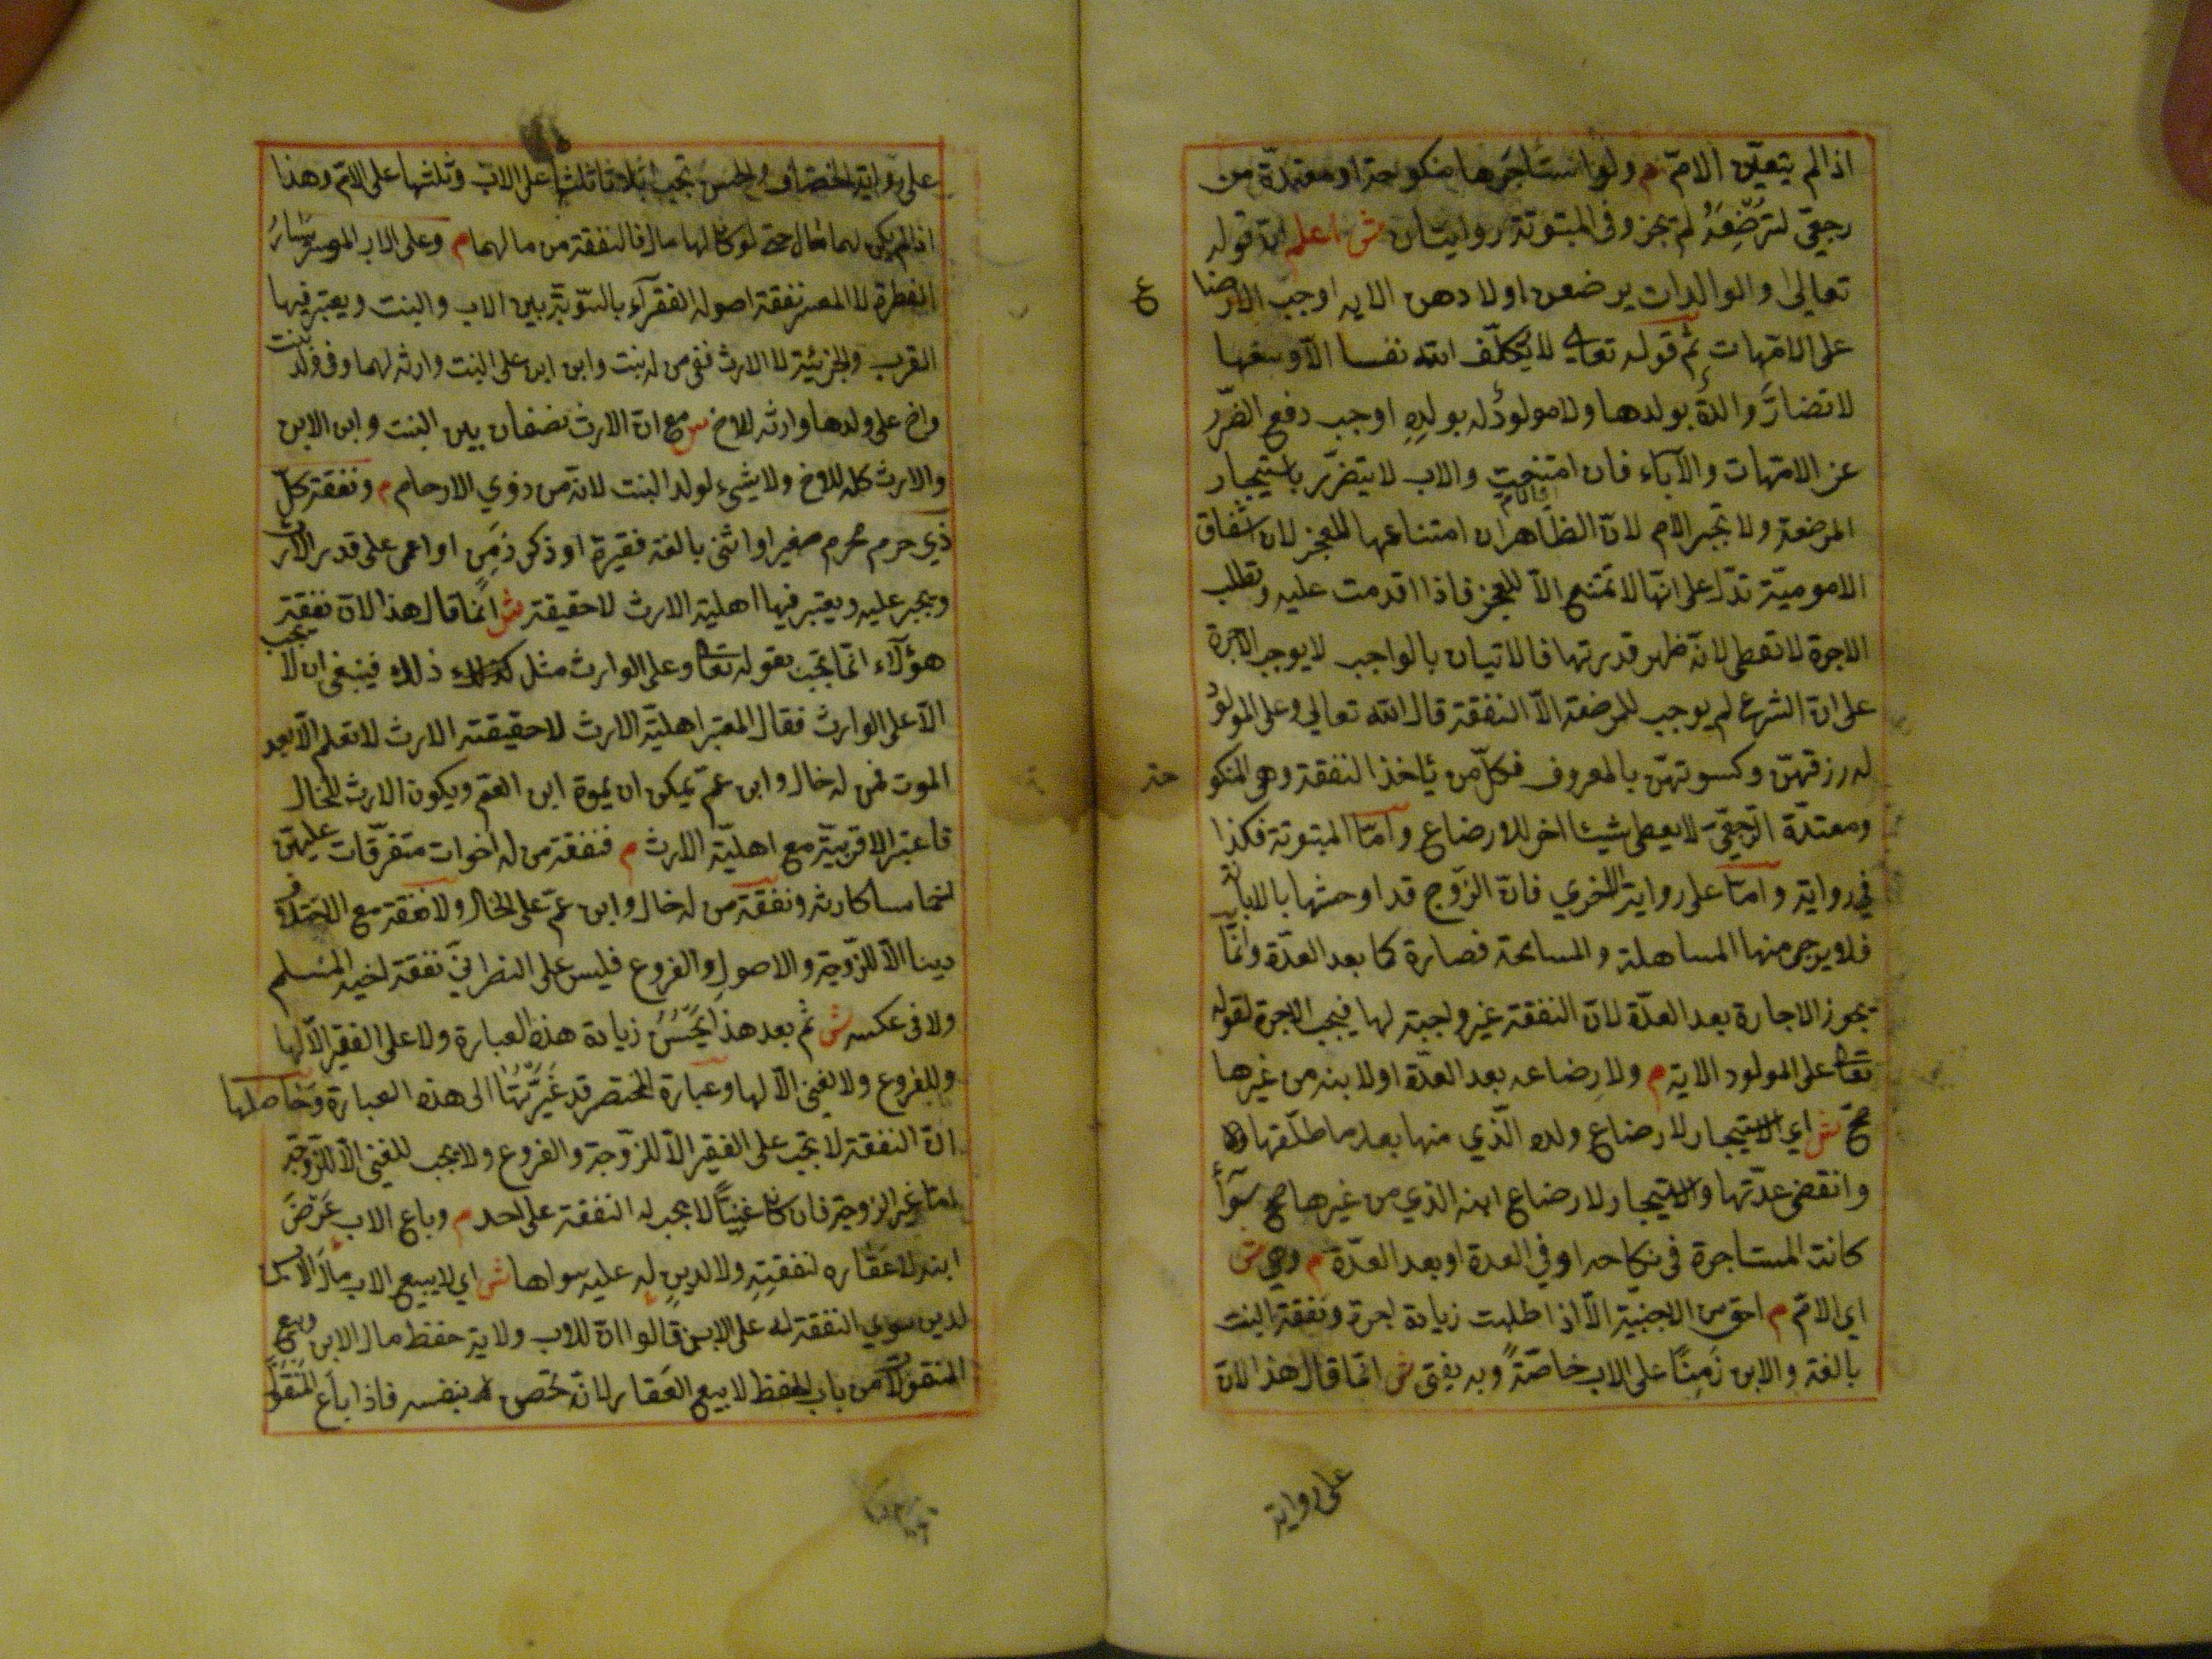 اذا لم يتعين الامّ م ولو استأجرها منكوحة او معتدّة من
رجعيّ لترضعه لم يجز وفي المبتوتة روايتان ش اعلم انّ قوله
تعالى والوالدات يرضعن اولادهن الايه اوجب الارضا
ع
على الامّهات ثم قوله تعالى لا يكلّف الله نفسا الّا وسعها
لا تضارّ والدة بولدها ولا مولود له بولده اوجب دفع الضّرر
عن الامّهات والآباء فان امتنعت والاب لا يتضرّر باستيجار
المرضعة ولا تجبر الام لانّ الظاهر ان امتناعها للعجز لان اشفاق
الاموميّة تدلّ على انّها لا تمتنع الّا للعجز فاذا اقدمت عليه وتطلب
الاجرة لا تعطى لانّه ظهر قدرتها فالاتيان بالواجب لا يوجب الاجرة
على انّ الشرع لم يوجب للمرضعة الّا النفقة قال الله تعالى وعلى المولود
له رزقهنّ وكسوتهنّ بالمعروف فكلّ من يأخذ النفقة وهي المنكو
حة
ومعتدّة الرّجعيّ لا يعطى شيئا اخر للارضاع وامّا المبتوتة فكذا
في رواية وامّا على رواية الاخري فانّ الزّوج قد اوحشها بالابانة
فلا يرجى منها المساهلة والمسامحة فصارة كما بعد العدّة وانّما
يجوز الاجارة بعد العدّة لانّ النفقة غير واجبة لها فيجب الاجرة لقوله
تعالى على المولود الاية م ولارضاعه بعد العدّة او لابنه من غيرها
صحّ ش اي الاستيجار لارضاع ولده الّذي منها بعد ما طلّقها
وانقضى عدّتها والاستيجار لارضاع ابنه الذي من غيرها صح سوآء
كانت المستاجرة في نكاحه او في العدة او بعد العدّة م وهي ش
اي الامّ م احق من الاجنبية الّا اذا طلبت زيادة اجرة ونفقة البنت
بالغة والابن زمنًا على الاب خاصّة وبه يفتى ش انّما قال هذا لانّ
على رواية
على رواية الخصّاف والحسن تجب اثلاثا ثلثاها على الاب وثلثها على الامّ وهذا
اذا لم يكن لهما مال حتى لو كان لهما مال فالنفقة من مالهما م وعلى الاب الموسر يسار
الفطرة لا المعسر نفقة اصوله الفقرآء بالسّويّة بين الاب والبنت ويعتبر فيها
القرب والجزئيّة لا الارث ففي من له بنت وابن ابن على البنت وارثه لهما وفي ولد بنت
واخ على ولدها وارثه للاخ ش مع انّ الارث نصفان بين البنت وابن الابن
والارث كله للاخ ولا شيء لولد البنت لانّه من ذوي الارحام م ونفقة كلّ
ذي رحم محرم صغير او انثى بالغة فقيرة او ذكر زمن او اعمى على قدر الارث
ويجبر عليه ويعتبر فيها اهليّة الارث لا حقيقة ش انّما قال هذا لانّ نفقة
هؤلآء انّما تجب بقوله تعالى وعلى الوارث مثل ذلك فينبغي ان لا تجب
الّا على الوارث فقال المعتبر اهليّة الارث لا حقيقته الارث لا تعلم الّا بعد
الموت فمن له خال وابن عمّ يمكن ان يموة ابن العمّ ويكون الارث للخال
فاعتبر الاقربيّة مع اهليّة الارث م فنفقة من له اخوات متفرّقات عليهنّ
اخماسا كارثه ونفقة من له خال وابن عمّ على الخال ولا نفقة مع الاختلاف
دينا الّا للزّوجة والاصول والفروع فليس على النصرانيّ نفقة اخيه المسلم
ولا في عكسه ش ثم بعد هذا يحسن زيادة هذه العبارة ولا على الفقير الّا لها
وللفروع ولا لغني الّا لها وعبارة المختصر قد غيّرتها الى هذه العبارة وحاصلها
انّ النفقة لا تجب على الفقير الّا للزّوجة والفروع ولا يجب للغني الّا للزّوجة
امّا غير الزوجة فان كان غنيّا لا يجب له النفقة على احد م وباع الاب عرض
ابنه لا عقاره لنفقته ولا لدين له عليه سواها ش اي لا يبيع الاب مال الابن
لدين سوي النفقة له على الابن قالوا انّ للاب ولاية حفظ مال الابن وبيع
المنقول من باب الحفظ لا بيع العقار لانّه محصن بنفسه فاذا باع المنقول